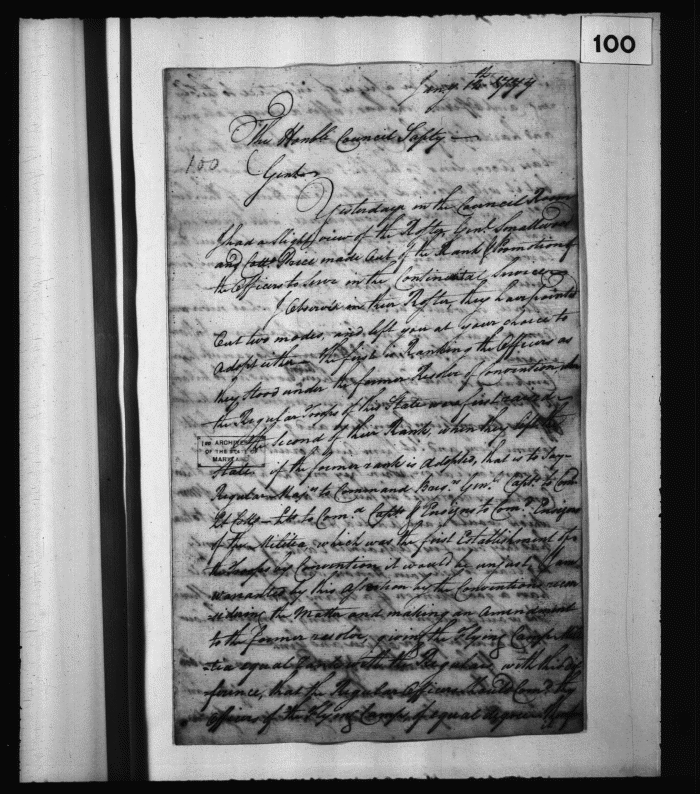 100
Jany. 14th 1777
The Honble Council Safty
100
Gentn
Yesterday in the Council Room
I had a Slight view of the Roster, Genl. Smallwood
and Collo. Price made Out, of the Rank & Promotion of
the Officers to Serve in the Continental Service
I Observe in their Roster, they have pointed
Out two modes, and left you at your choice to
adopt either the first is Ranking the Officers as
they stood under the former Resolve of Convention, when
the Regular Troops of this State were first raised
the Second of their Rank, when they left the
THE ARCHIVES
OF THE STATE OF
MARYLAND
State. if the former rank is Adopted, that is to Say
Regular Majrs to Command Captn to
Lts to Comd. Captns & Ensigns to Comd. Ensigns
of the Militea, which was the first Establishment of
the Troops by Convention it would be unjust,
warranted by this Assertion by the Convention
the Matter and making an Amendment
to the former resolve, giving the Flying Camp
equal Rank with the Regulars, with this
ference, that the Regular Officers should Comd. the
Officers of the Flying Camp, if equal degree